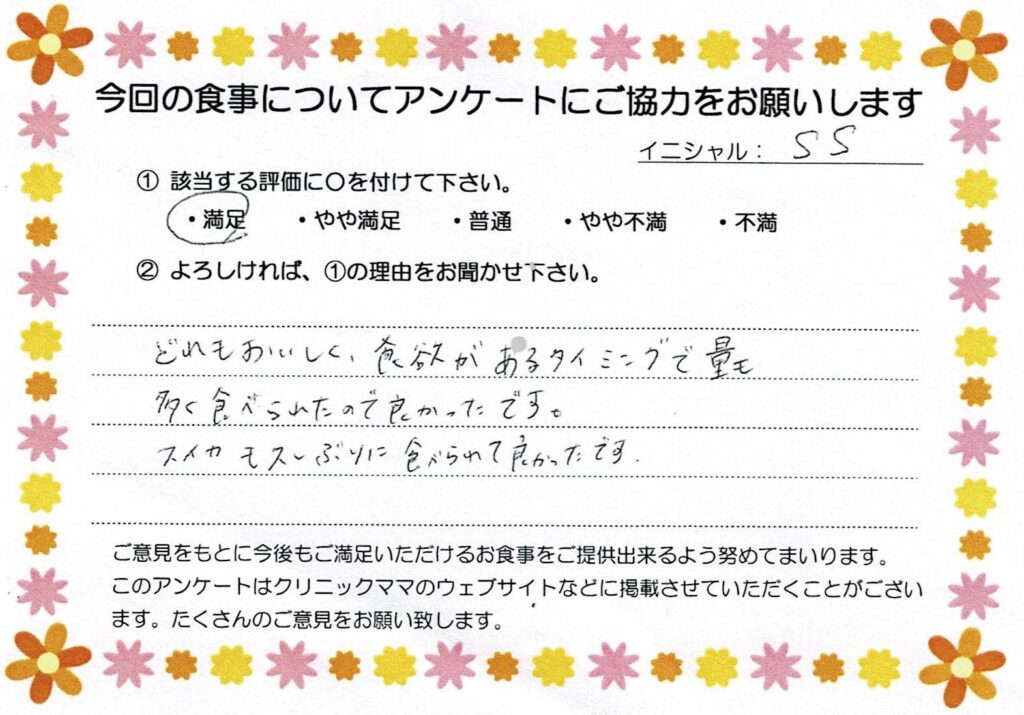 今回の食事についてアンケートにご協力をお願いします
イニシャル： SS
① 該当する評価に〇を付けて下さい。
・満足 ・やや満足 ・普通 ・やや不満 ・不満
② よろしければ、①の理由をお聞かせ下さい。
どれもおいしく、食欲があるタイミングで量も
多く食べられたので良かったです。
スイカも久しぶりに食べられて良かったです.
ご意見をもとに今後もご満足いただけるお食事をご提供出来るよう努めてまいります。
このアンケートはクリニックママのウェブサイトなどに掲載させていただくことがござい
ます。たくさんのご意見をお願い致します。